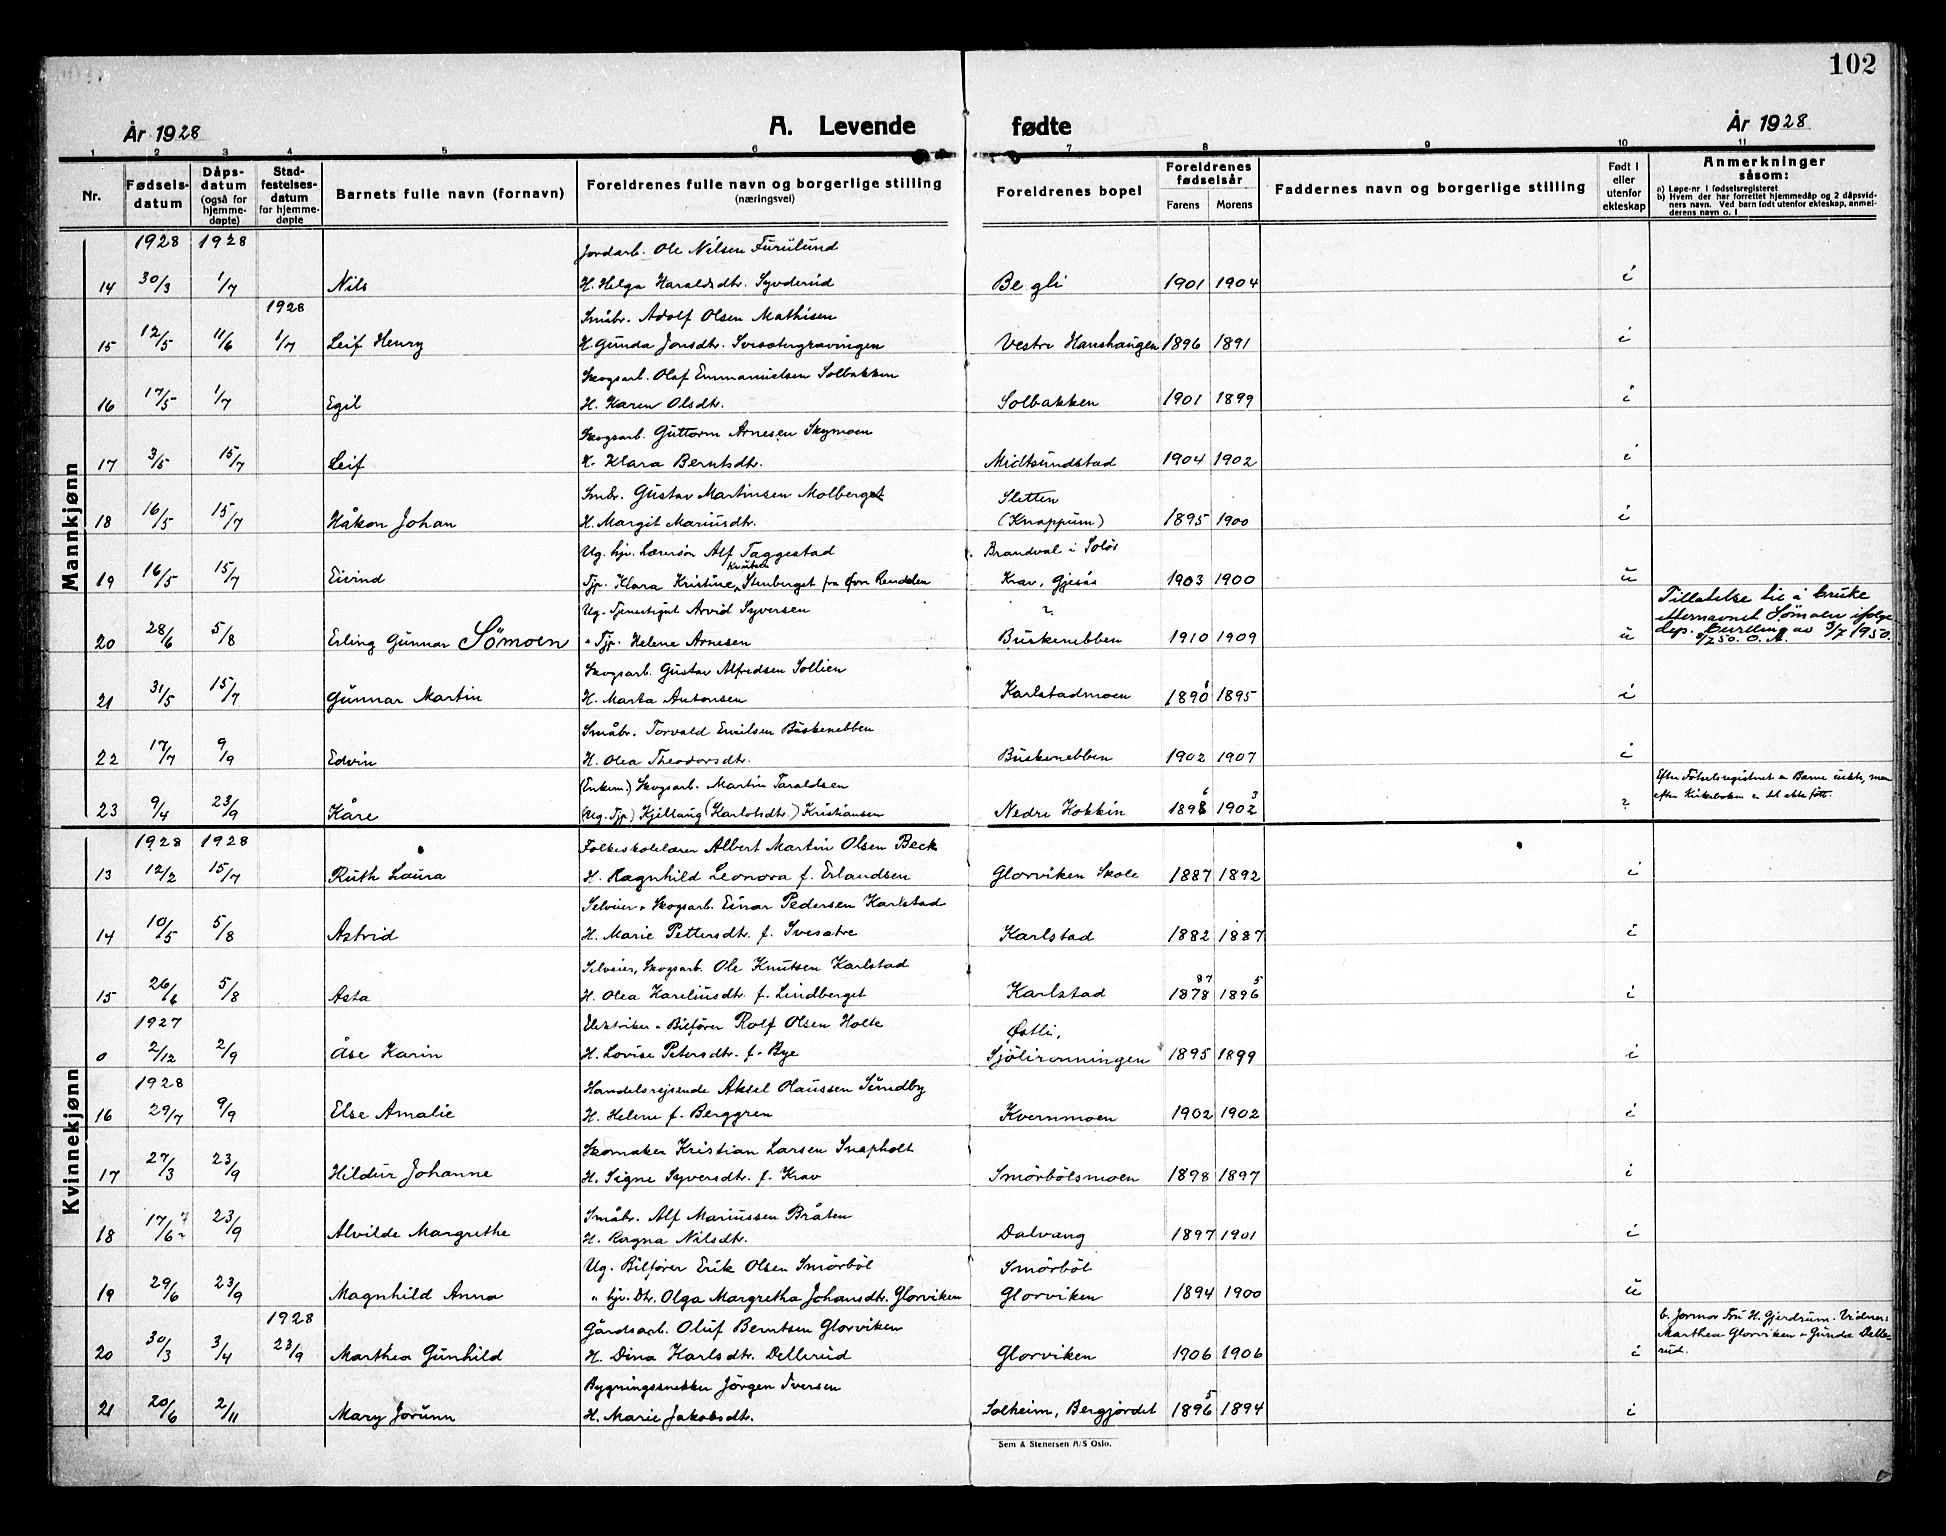 102
År 1928 A. Levende fødte År 1928
1 2 3 4 5 6 7 8 9 10 11
Nr. Fødselsdatum Dåpsdatum (også for hjemmedøpte) Stadfestelsesdatum for hjemmedøpte Barnets fulle navn (fornavn) Foreldrenes fulle navn og borgerlige stilling (næringsvei) Foreldrenes bopel Foreldrenes fødselsår Farens Morens Faddernes navn og borgerlige stilling Født i eller utenfor ekteskap Anmerkninger såsom:
a) Løpe-nr i fødselsregisteret
b) Hvem der har forrettet hjemmedåp og 2 dåpsvidners navn. Ved barn født utenfor ekteskap, anmelderens navn o. l
Mannkjønn
1928 1928 Jordarb. Ole Nilsen Furulund
14 30/3 1/7 Nils H. Helga Haraldsdtr. Syverud Bergli 1901 1904 i
1928 Småbr. Adolf Olsen Mathisen
15 12/5 11/6 1/7 Leif Henry H. Gunda Jonsdtr. Svesætergravingen Vestre Hanshaugen 1896 1891 i
Skogsarb. Olaf Emmanuelsen Solbakken
16 17/5 1/7 Egil H. Karen Olsdtr. Solbakken 1901 1899 i
Skogsarb. Guttorm Arnesen Skymoen
17 3/5 15/7 Leif H. Klara Berntsdtr. Midtsundstad 1904 1902 i
Smbr. Gustav Martinsen Molberget Sletten
18 16/5 15/7 Håkon Johan H. Margit Mariusdtr. (Knappum) 1895 1900 i
Ug. hjv. Lærersön Alf Taggestad Brandval i Solör
Knutsen
19 16/5 15/7 Eivind Tjp. Klara Kristine Stenberget fra Övre Rendalen Krav, Gjesås 1903 1900 u
Ug. Tjenestegut Arvid Syversen ?
20 28/6 5/8 Erling Gunnar Sömoen " Tjp. Helene Arnesen Buskenebben 1910 1909 u
Tillatelse til å bruke
etternavnet Sömoen ifölge
dep. bevilling av 3/7 1950.
7/7 50. O. A.
Skogsarb. Gustav Alfredsen Sollien
21 31/5 15/7 Gunnar Martin H. Marta Antonsen Karlstadmoen 1890 1895 i
Småbr. Torvald Emilsen Buskenebben
22 17/7 9/9 Edvin H. Olea Theodorsdtr. Buskenebben 1902 1907 i
(Enkem.) Skogsarb. Martin Taraldsen 6 3
23 9/4 23/9 Kåre (Ug. Tjp.) Kjellaug (Karlotsdtr.) Kristiansen Nedre Hokkin 1898 1902 ?
Efter Födselsregistret er Barnet uekte, men
efter Kirkeboken er det ekte født.
Kvinnekjønn
1928 1928 Folkeskolelærer Albert Martin Olsen Beck
13 12/2 15/7 Ruth Laura H. Ragnhild Leonora f. Erlandsen Glorviken Skole 1887 1892 i
Selveier, Skogsarb. Einar Pedersen Karlstad
14 10/5 5/8 Astrid H. Marie Pettersdtr. f. Svesætre Karlstad 1882 1887 i
Selveier, Skogsarb. Ole Knutsen Karlstad 87 5
15 26/6 5/8 Asta H. Olea Kareliusdtr. f. Lindberget Karlstad 1878 1896 i
1927 Elektriker - Bilfører Rolf Olsen Holte Østli,
0 2/12 2/9 Åse Karin H. Lovise Petersdtr. f. Bye Sjölironningen 1895 1899 i
1928 Handelsreisende Aksel Olaussen Sundby
16 29/7 9/9 Else Amalie H. Helene f. Berggren Kvernmoen 1902 1902 i
Skomaker Kristian Larsen Snapholt
17 27/3 23/9 Hildur Johanne H. Signe Syversdtr. f. Krav Smörbölsmoen 1898 1897 i
Småbr. Alf Mariussen Bråten
18 17/6 ? 23/9 Alvilde Margrethe H. Ragna Nilsdtr. Dalvang 1897 1901 i
Ug. Bilfører Erik Olsen Smörböl Smörböl
19 29/6 23/9 Magnhild Anna " hjv. Dtr. Olga Margretha Johansdtr. Glorviken Glorviken 1894 1900 u
1928 Gårdsarb. Oluf Berntsen Glorviken
20 30/3 3/4 23/9 Marthea Gunhild H. Dina Karlsdtr. Dellerud Glorviken 1906 1906 i
b. Jormor Fru H. Gjerdrum. Vidner:
Marthea Glorviken - Gunda Delle-
rud.
Bygningssnekker Jörgen Iversen 5
21 20/6 2/11 Mary Jorunn H. Marie Jakobsdtr. Solheim, Bergjordet 1896 1894 i
Sem & Stenersen A/S Oslo.